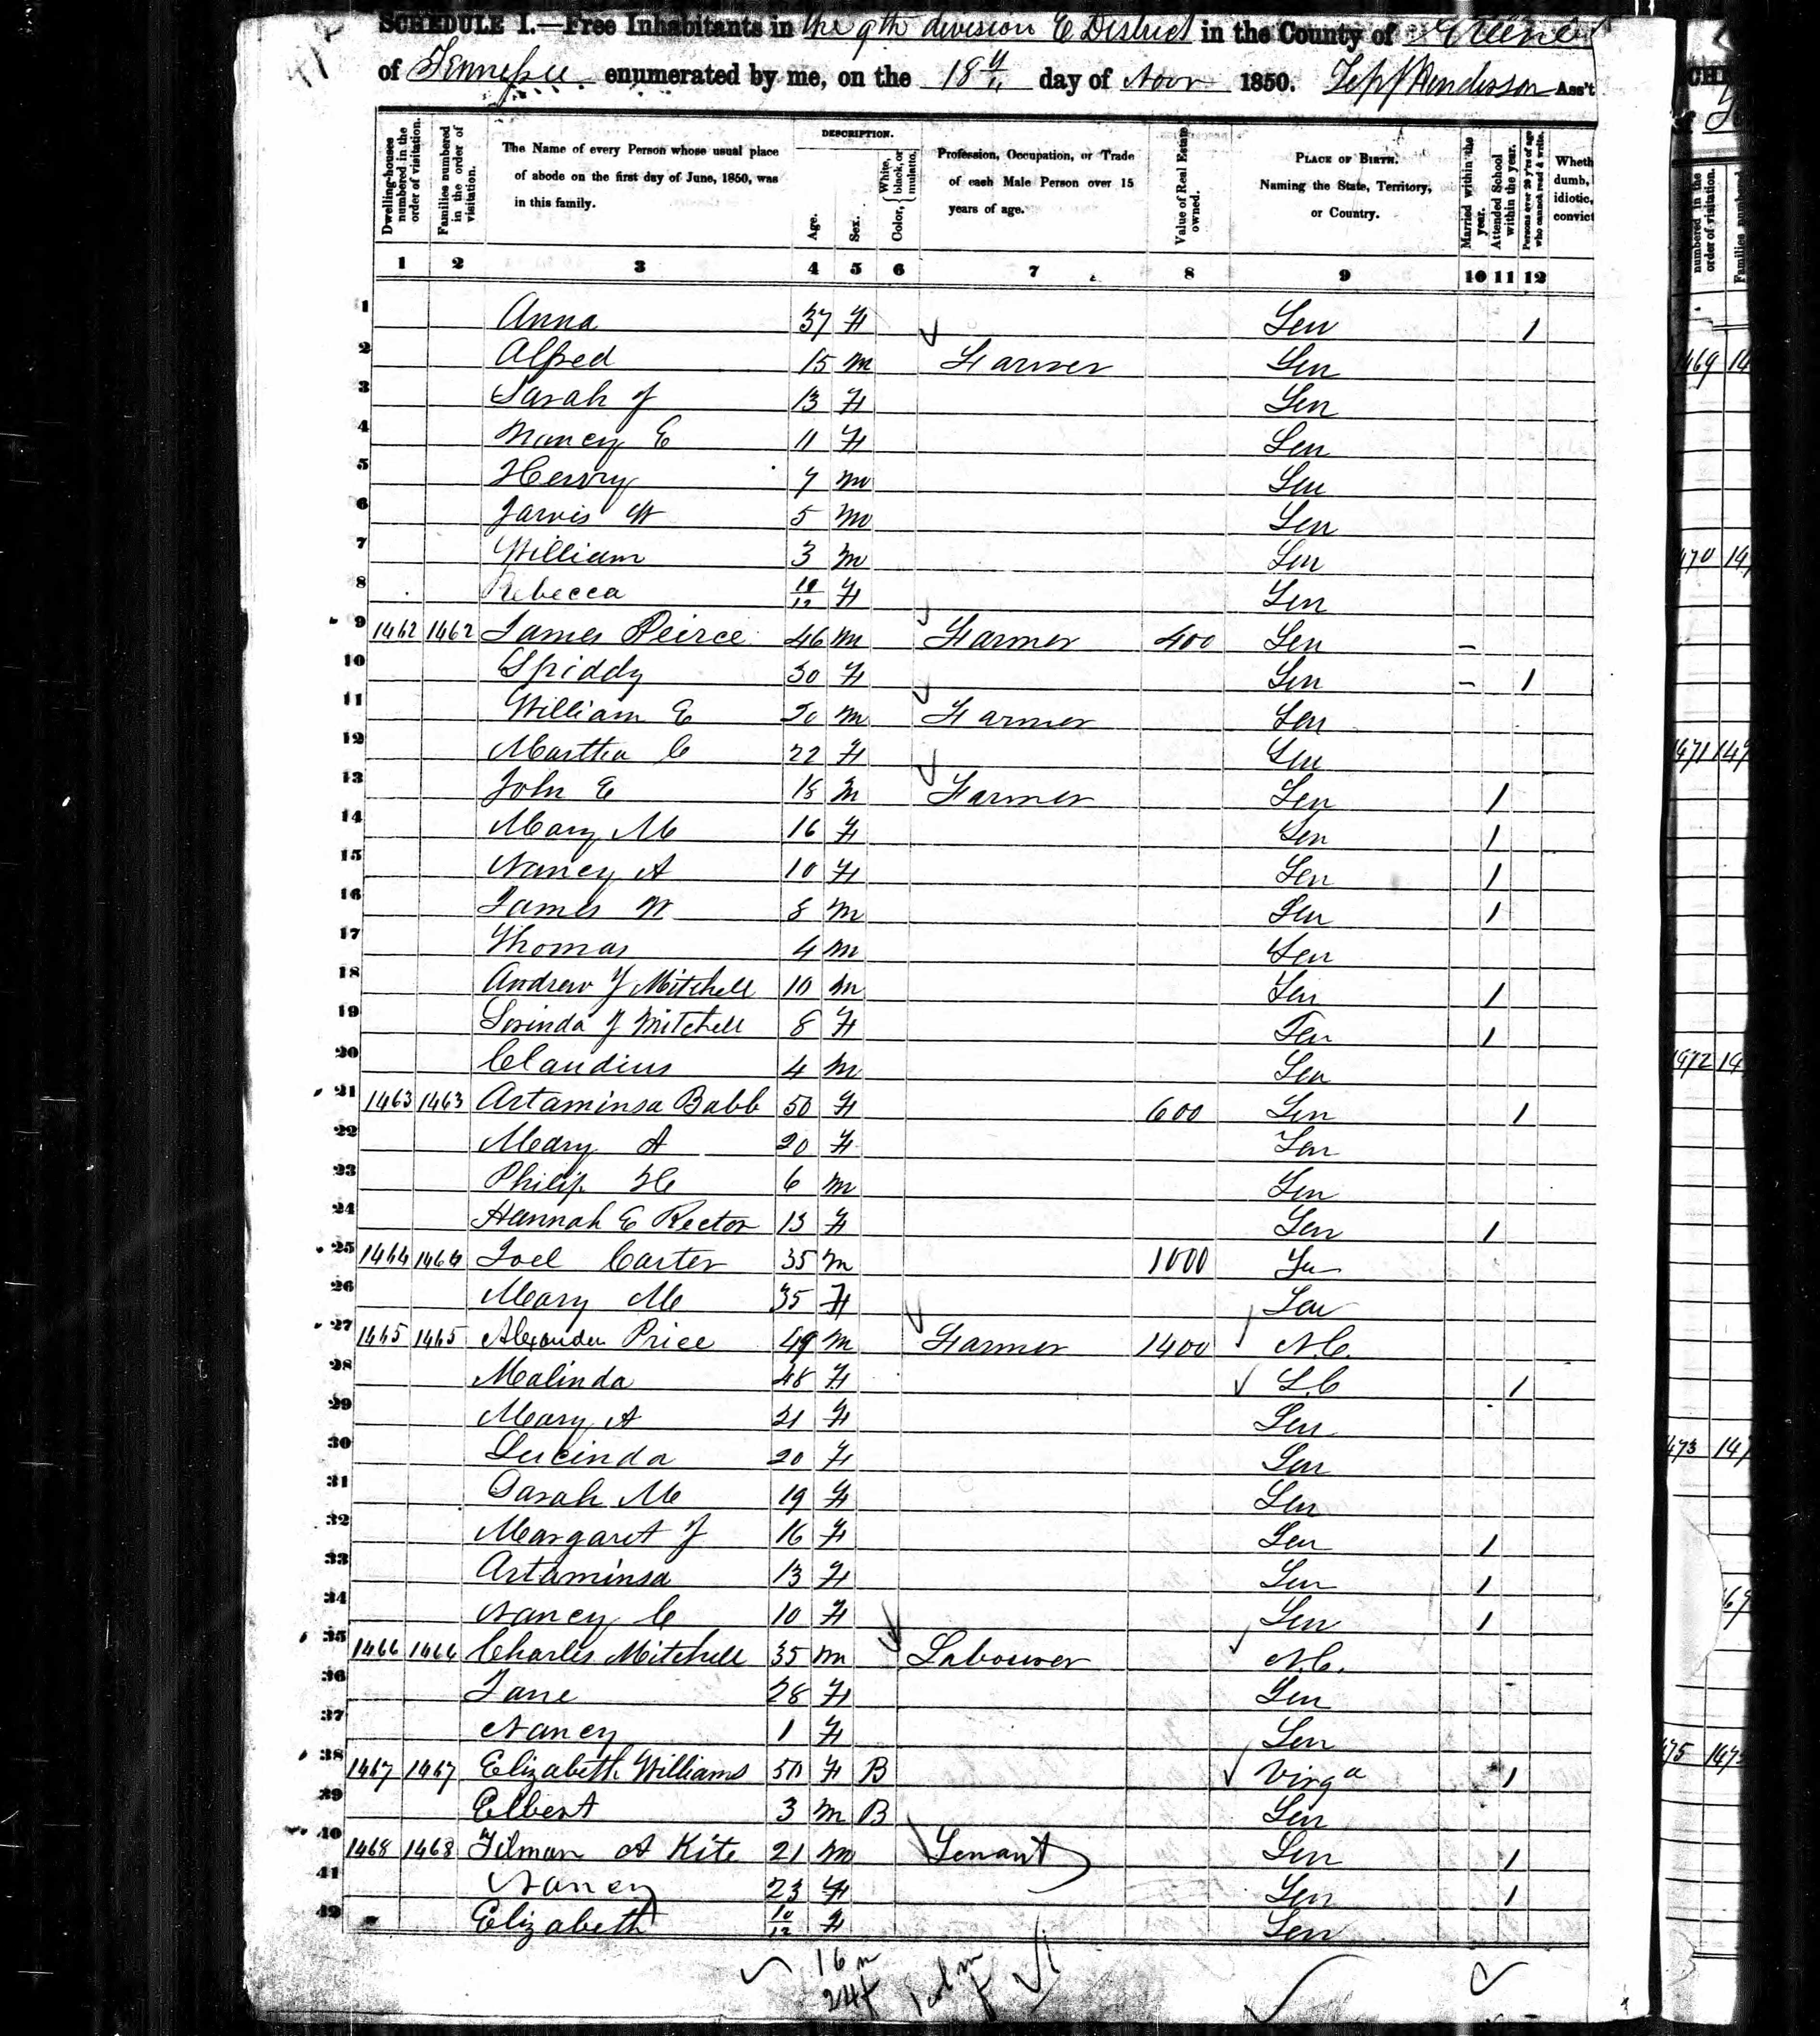 SCHEDULE I.—Free Inhabitants in the 9th division E District in the County of Greene
of Tennessee enumerated by me, on the 18th day of Novr 1850. Henderson Ass't
DESCRIPTION.
Dwelling-houses numbered in the order of visitation.
Families numbered in the order of visitation.
The Name of every Person whose usual place of abode on the first day of June, 1850, was in this family.
Age.
Sex.
Color, { White, black, or mulatto.
Profession, Occupation, or Trade of each Male Person over 15 years of age.
Value of Real Estate owned.
PLACE OF BIRTH. Naming the State, Territory, or Country.
Married within the year.
Attended School within the year.
Persons over 20 years of age who cannot read & write.
Wheth dumb, idiotic, convict
1 2 3 4 5 6 7 8 9 10 11 12
1 Anna 37 F Ten 1
2 Alfred 15 m Farmer Ten
3 Sarah J 13 F Ten
4 Nancy E 11 F Ten
5 Henry 7 m Ten
6 Jarvis W 5 m Ten
7 William 3 m Ten
8 Rebecca 10/12 F Ten
9 1462 1462 James Peirce 46 m Farmer 400 Ten –
10 Spiddy 30 F Ten – 1
11 William E 20 m Farmer Ten
12 Martha C 22 F Ten
13 John E 18 m Farmer Ten 1
14 Mary M 16 F Ten 1
15 Nancy A 10 F Ten 1
16 James W 8 m Ten 1
17 Thomas 4 m Ten
18 Andrew J Mitchell 10 m Ten 1
19 Lorinda J Mitchell 8 F Ten 1
20 Claudius 4 m Ten
21 1463 1463 Artaminsa Babb 50 F 600 Ten 1
22 Mary A 20 F Ten
23 Philip H 6 m Ten
24 Hannah E Rector 13 F Ten 1
25 1464 1464 Joel Carter 35 m 1000 Ten
26 Mary M 35 F Ten
27 1465 1465 Alexander Price 49 m Farmer 1400 N.C.
28 Malinda 48 F S.C 1
29 Mary A 21 F Ten
30 Lucinda 20 F Ten
31 Sarah M 19 F Ten
32 Margaret J 16 F Ten 1
33 Artaminsa 13 F Ten 1
34 Nancy C 10 F Ten 1
35 1466 1466 Charles Mitchell 35 m Labourer N.C.
36 Jane 28 F Ten
37 Nancy 1 F Ten
38 1467 1467 Elizabeth Williams 50 F B Virga 1
39 Elbert 3 m B Ten
40 1468 1468 Tilman A Kite 21 m Tenant Ten 1
41 Nancy 23 F Ten 1
42 Elizabeth 10/12 F Ten
16 m
24 f